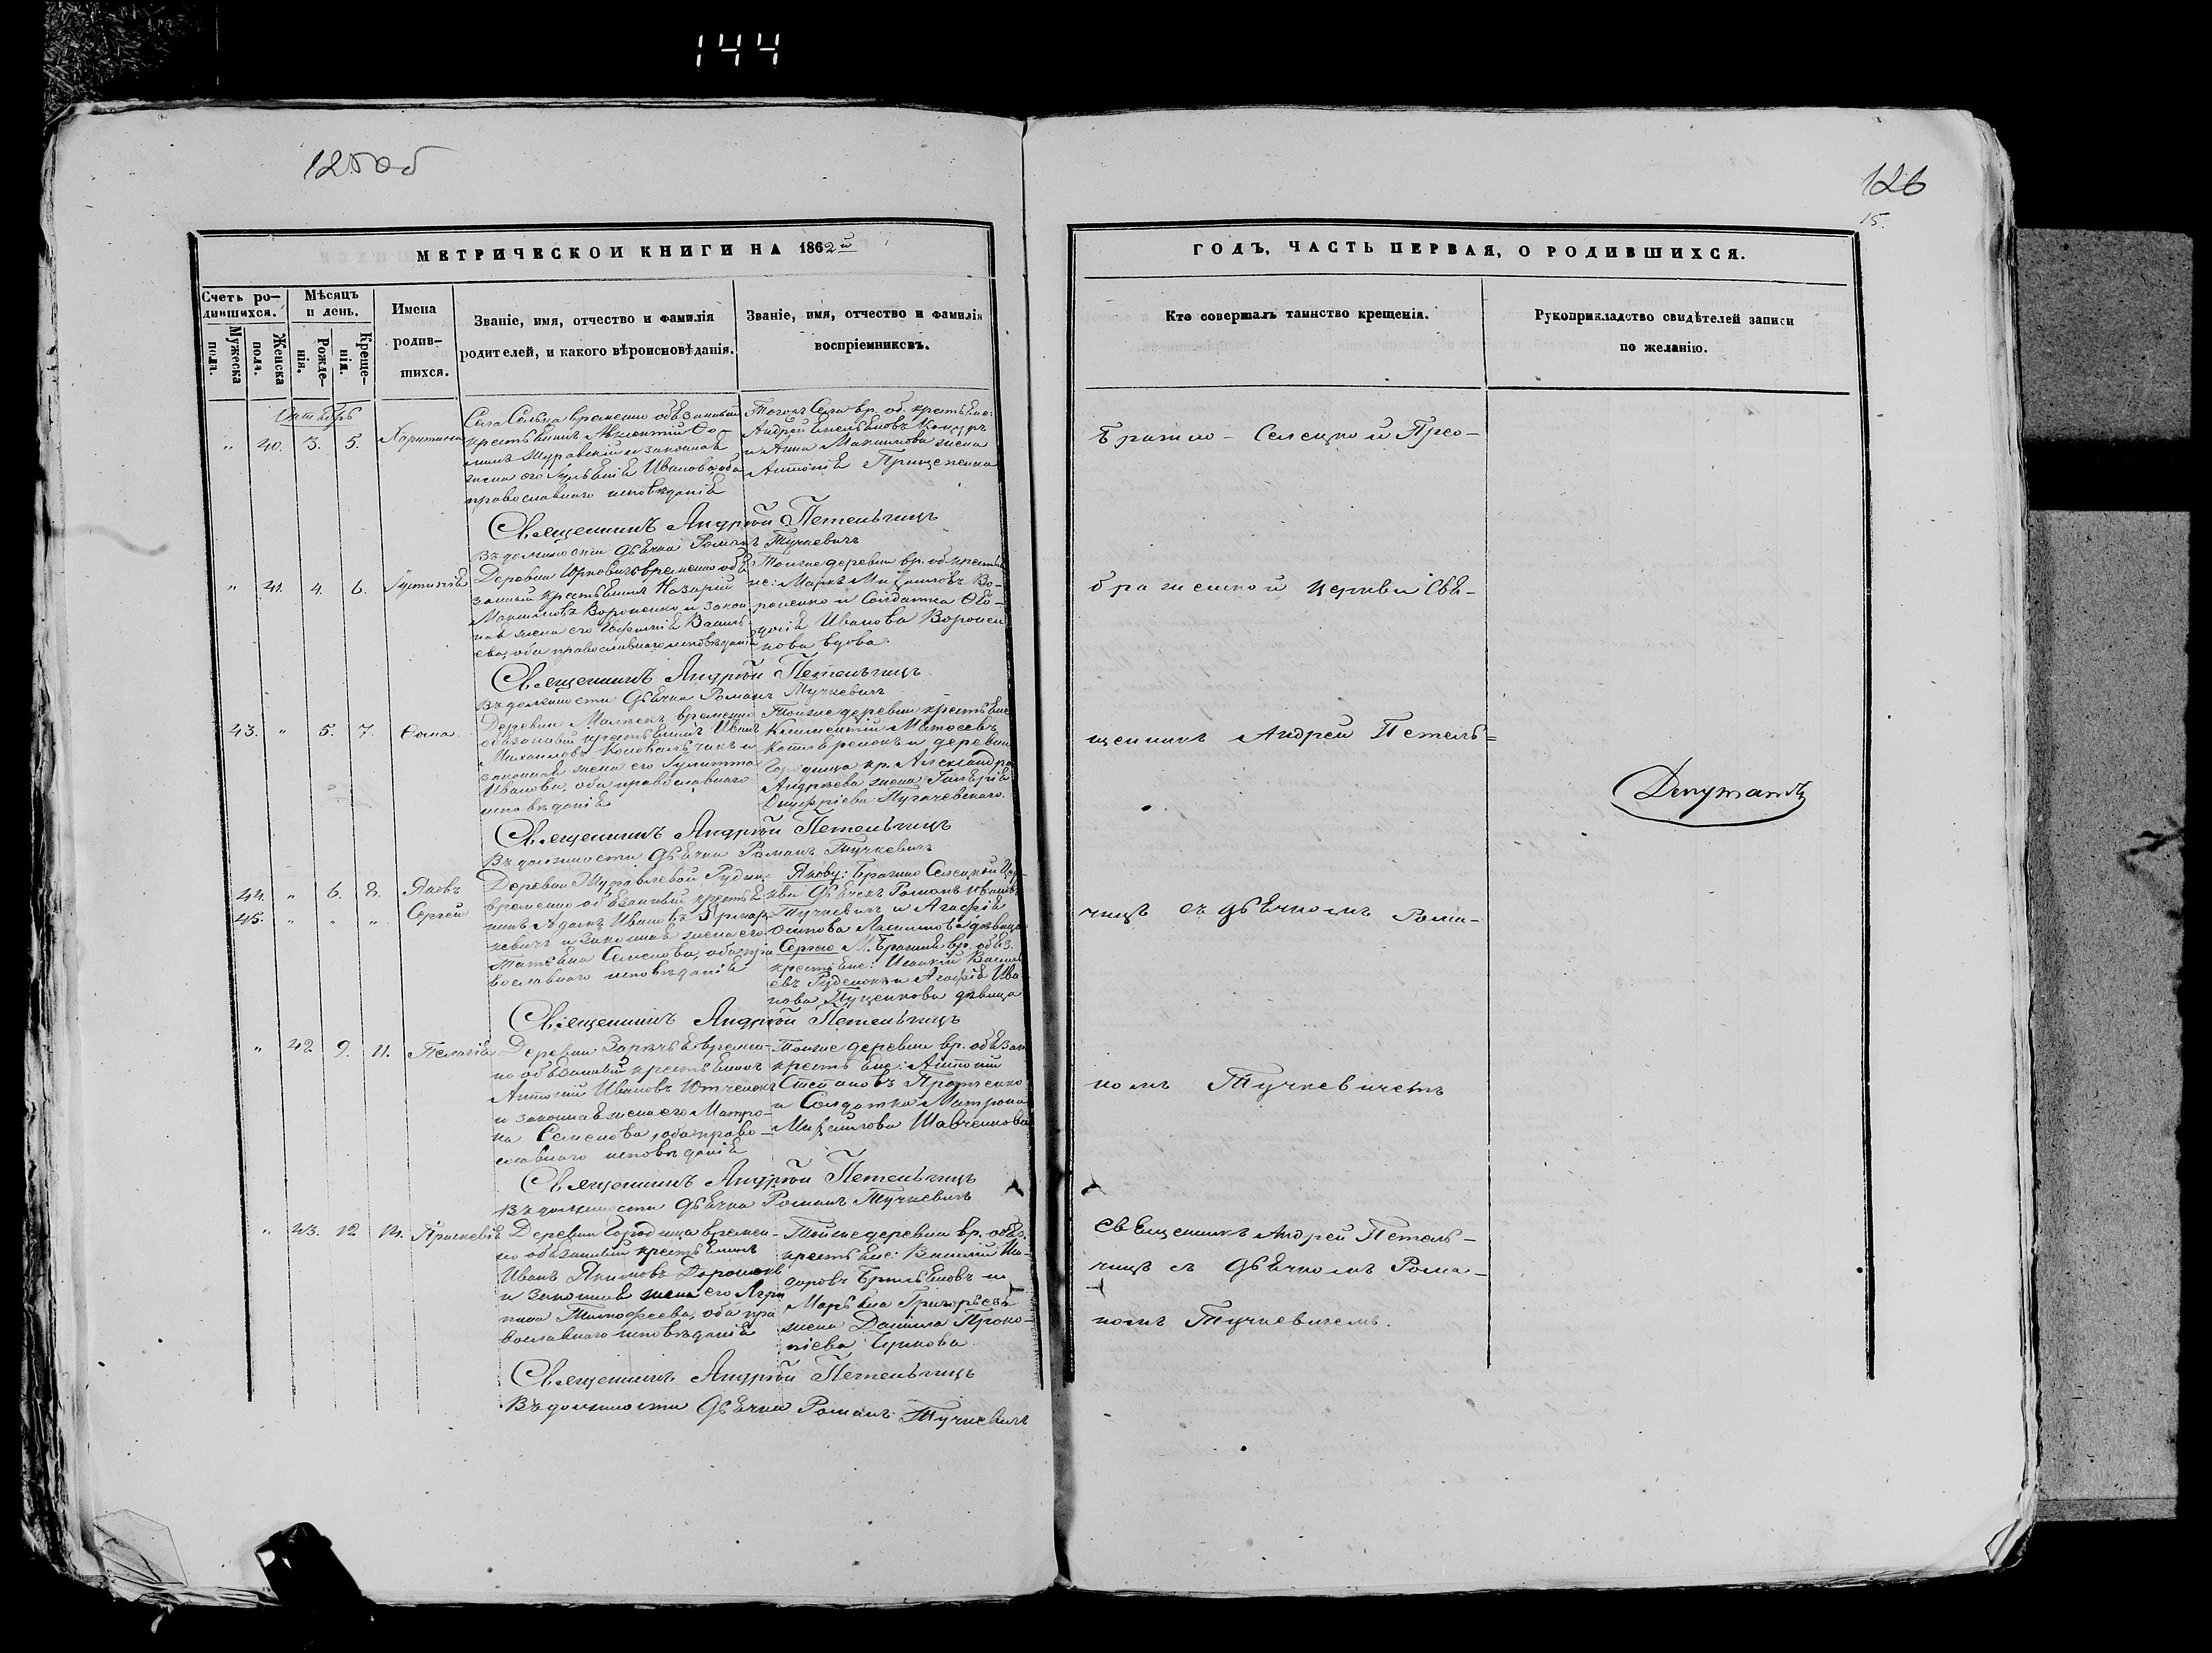 144
125об
126
15.
МЕТРИЧЕСКОЙ КНИГИ НА 1862й
Счетъ ро-
дившихся.
Мужеска
пола.
Женска
пола.
Мѣсяцъ
и день.
Рожде-
нія.
Креще-
нія.
Имена
родив-
шихся.
Званіе, имя, отчество и фамилія
родителей, и какого вѣроисповѣданія.
Званіе, имя, отчество и фамилія
воспріемниковъ.
Октябрь
" 40. 3. 5. Харитина
Села Сельца временно обязанный
крестьянинъ Авксентій Ѳо-
минъ Журавскій и законная
жена его Иванова, оба
православнаго исповѣданія
Тогожъ Села вр. об. крестьяне:
Андрей Емельяновъ Концуръ
и Анна Максимова жена
Антонія Прищепенка
Священникъ Андрей Петельчицъ
Въ должности дьячка Романъ Тучкевичъ
" 41. 4. 6. Іустинія
Деревни Юрковичъ временно обя-
занный крестьянинъ Назарій
Максимовъ Вороненко и закон
ная жена его Василь
ева, оба православнаго исповѣданія
Тойже деревни вр. об. крестья
не: Марко Михайловъ Во-
роненко и Солдатка Ѳео-
досія Иванова Воронен
кова вдова.
Священникъ Андрей Петельчицъ
Въ должности дьячка Романъ Тучкевичъ
43. " 5. 7. Ѳома.
Деревни временно
обязанный крестьянинъ Иванъ
Михайловъ Коновальчикъ и
законная жена его Іулитта
Иванова, оба православнаго
исповѣданія
Тойже деревни крестьяне
Климентій Матѳеевъ
и деревни
Городища кр. Александра
Андреева жена
Онуфріева Пугачевскаго.
Священникъ Андрей Петельчицъ
Въ должности дьячка Романъ Тучкевичъ
44. " 6. 8. Яковъ
45. " " " Сергей
Деревни Журавлевой Рудни
временно обязанный крестья
нинъ Адамъ Ивановъ
кевичъ и законная жена его
Татьяна Семенова, оба пра
вославнаго исповѣданія
Якову: Брагино Селецкой Цер-
кви дьячекъ Романъ
Тучкевичъ и Агафія
Осипова дѣвица
Сергею М. Брагина вр. обяз.
крестьяне: Исаакій Василь
евъ Руденокъ и Агафія Ива
нова Луценкова дѣвица
Священникъ Андрей Петельчицъ
" 42 9. 11. Пелагія
Деревни Зарѣчья времен-
но обязанный крестьянинъ
Антоній Ивановъ Ютченокъ
и законная жена его Матро-
на Семенова, оба право-
славнаго исповѣданія
Тойже деревни вр. обязан
крестьяне: Антоній
Степановъ Проженко
и Солдатка Матрона
Михайлова Шавченкова
Священникъ Андрей Петельчицъ
Въ должности дьячка Романъ Тучкевичъ
" 43. 12 14. Праскевія
Деревни Городища времен-
но обязанный крестьянинъ
Иванъ Якимовъ Дорошокъ
и законная жена его Агри
пина Тимофеева, оба пра
вославнаго исповѣданія
Тойже деревни вр. обяз.
крестьяне: Василій Ни-
доровъ и
Марьяна Григорьева
жена Даніила Проко-
піева Чуркова.
Священникъ Андрей Петельчицъ
Въ должности дьячка Романъ Тучкевичъ
ГОДЪ, ЧАСТЬ ПЕРВАЯ, О РОДИВШИХСЯ.
Кто совершалъ таинство крещенія.
Рукоприкладство свидѣтелей записи
по желанію.
Брагино-Селецкой Прео-
браженской церкви Свя-
щенникъ Андрей Петель=
чицъ съ дьячкомъ Рома-
номъ Тучкевичемъ
Священникъ Андрей Петель-
чицъ съ дьячкомъ Рома-
номъ Тучкевичемъ.
Депутатъ